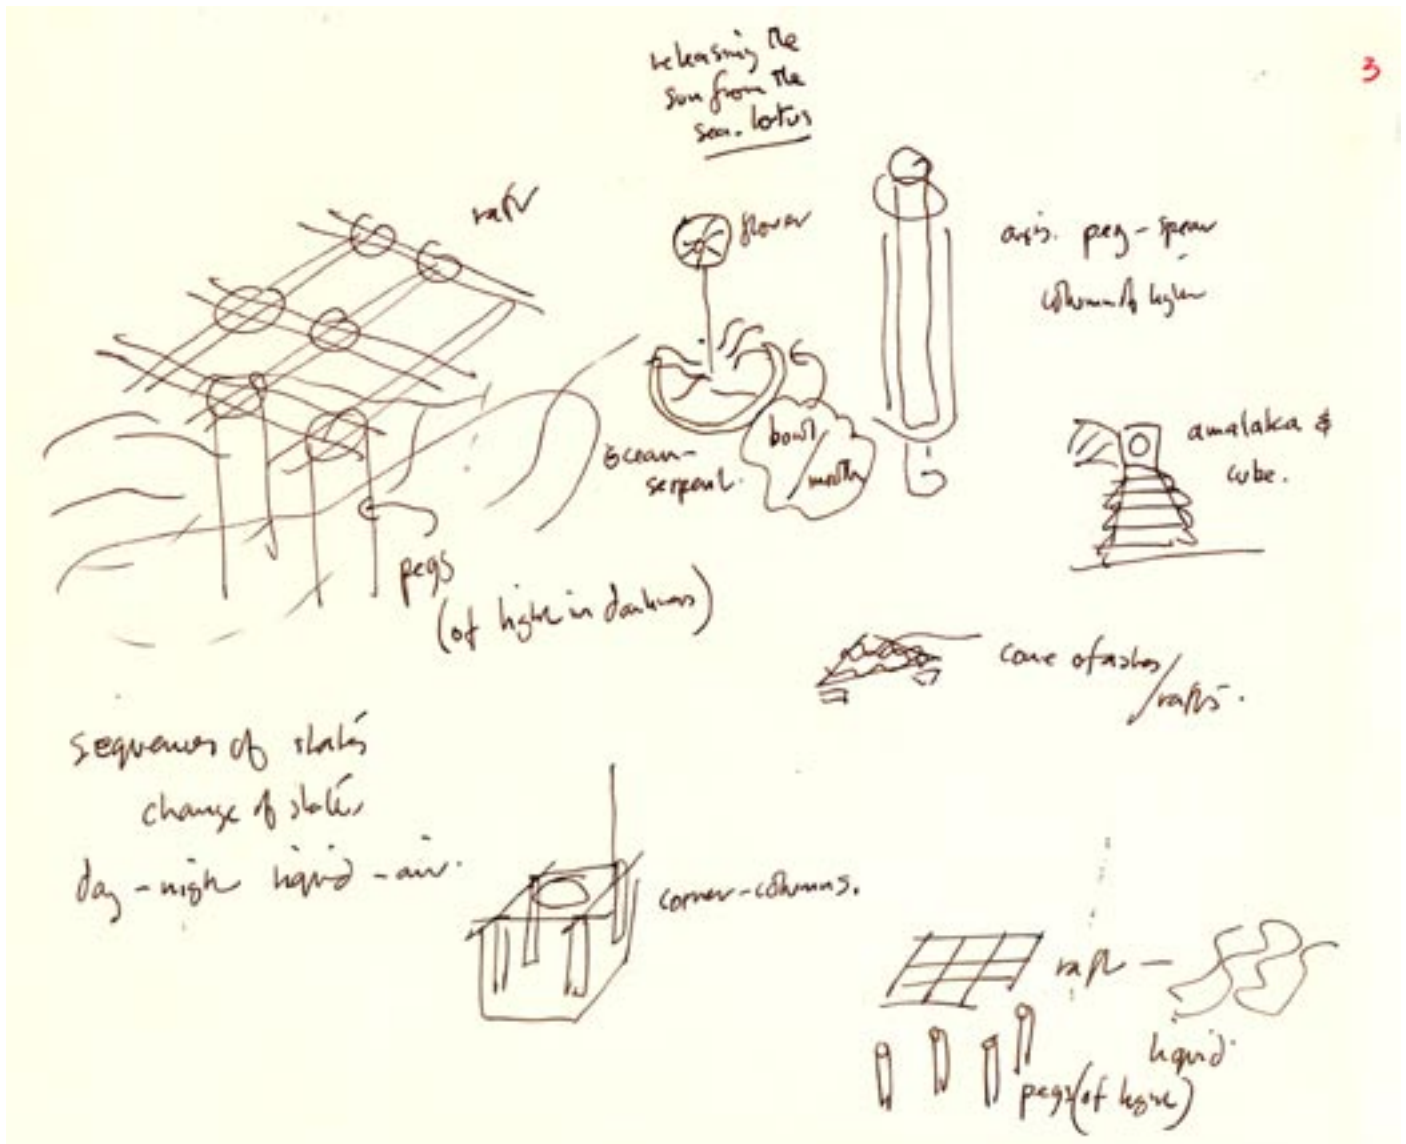 3
releasing the
sun from the
sea. lotus
raft
flower
axis. peg-spear
column of light
ocean-
serpent.
bowl/
mouth
amalaka &
cube.
pegs
(of light in darkness)
cone of ashes/
rafts.
sequences of states
change of states
day-night liquid-air.
corner-columns.
raft —
liquid
pegs (of light)